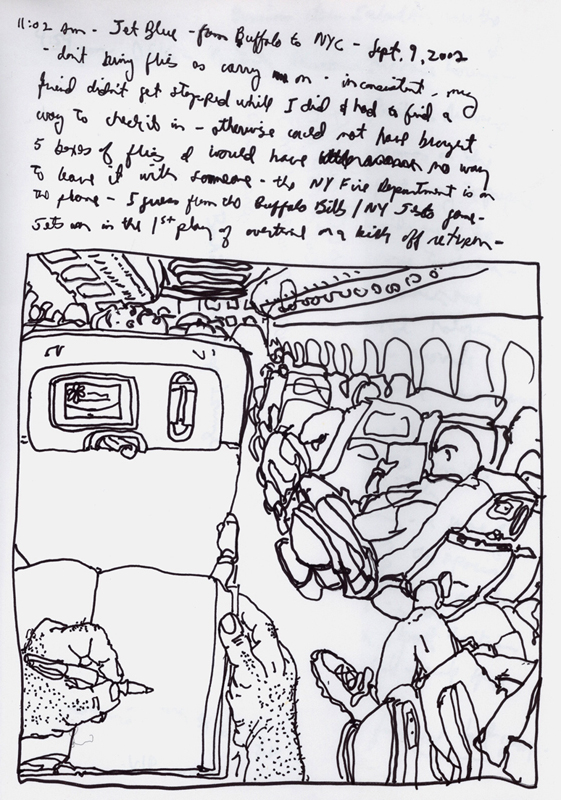 11:02 am - Jet Blue - from Buffalo to NYC - Sept. 9, 2002
- don't bring flies as carry on - inconsistent, my
friend didn't get stopped while I did & had to find a
way to check it in - otherwise could not have brought
5 boxes of flies & would have no way
to leave it with someone - the NY Fire Department is on
the plane - I guess from the Buffalo Bills / NY Jets game -
Jets won in the 1st play of overtime on a kick off return -